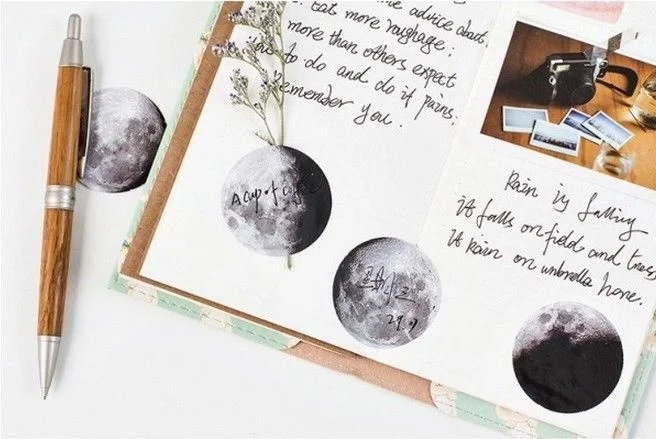 Eat more roughage:
more than others expect
to do and do it pains.
remember you.
A cup of coffee
29.9
Rain is falling
it falls on field and trees
It rain on umbrella here.